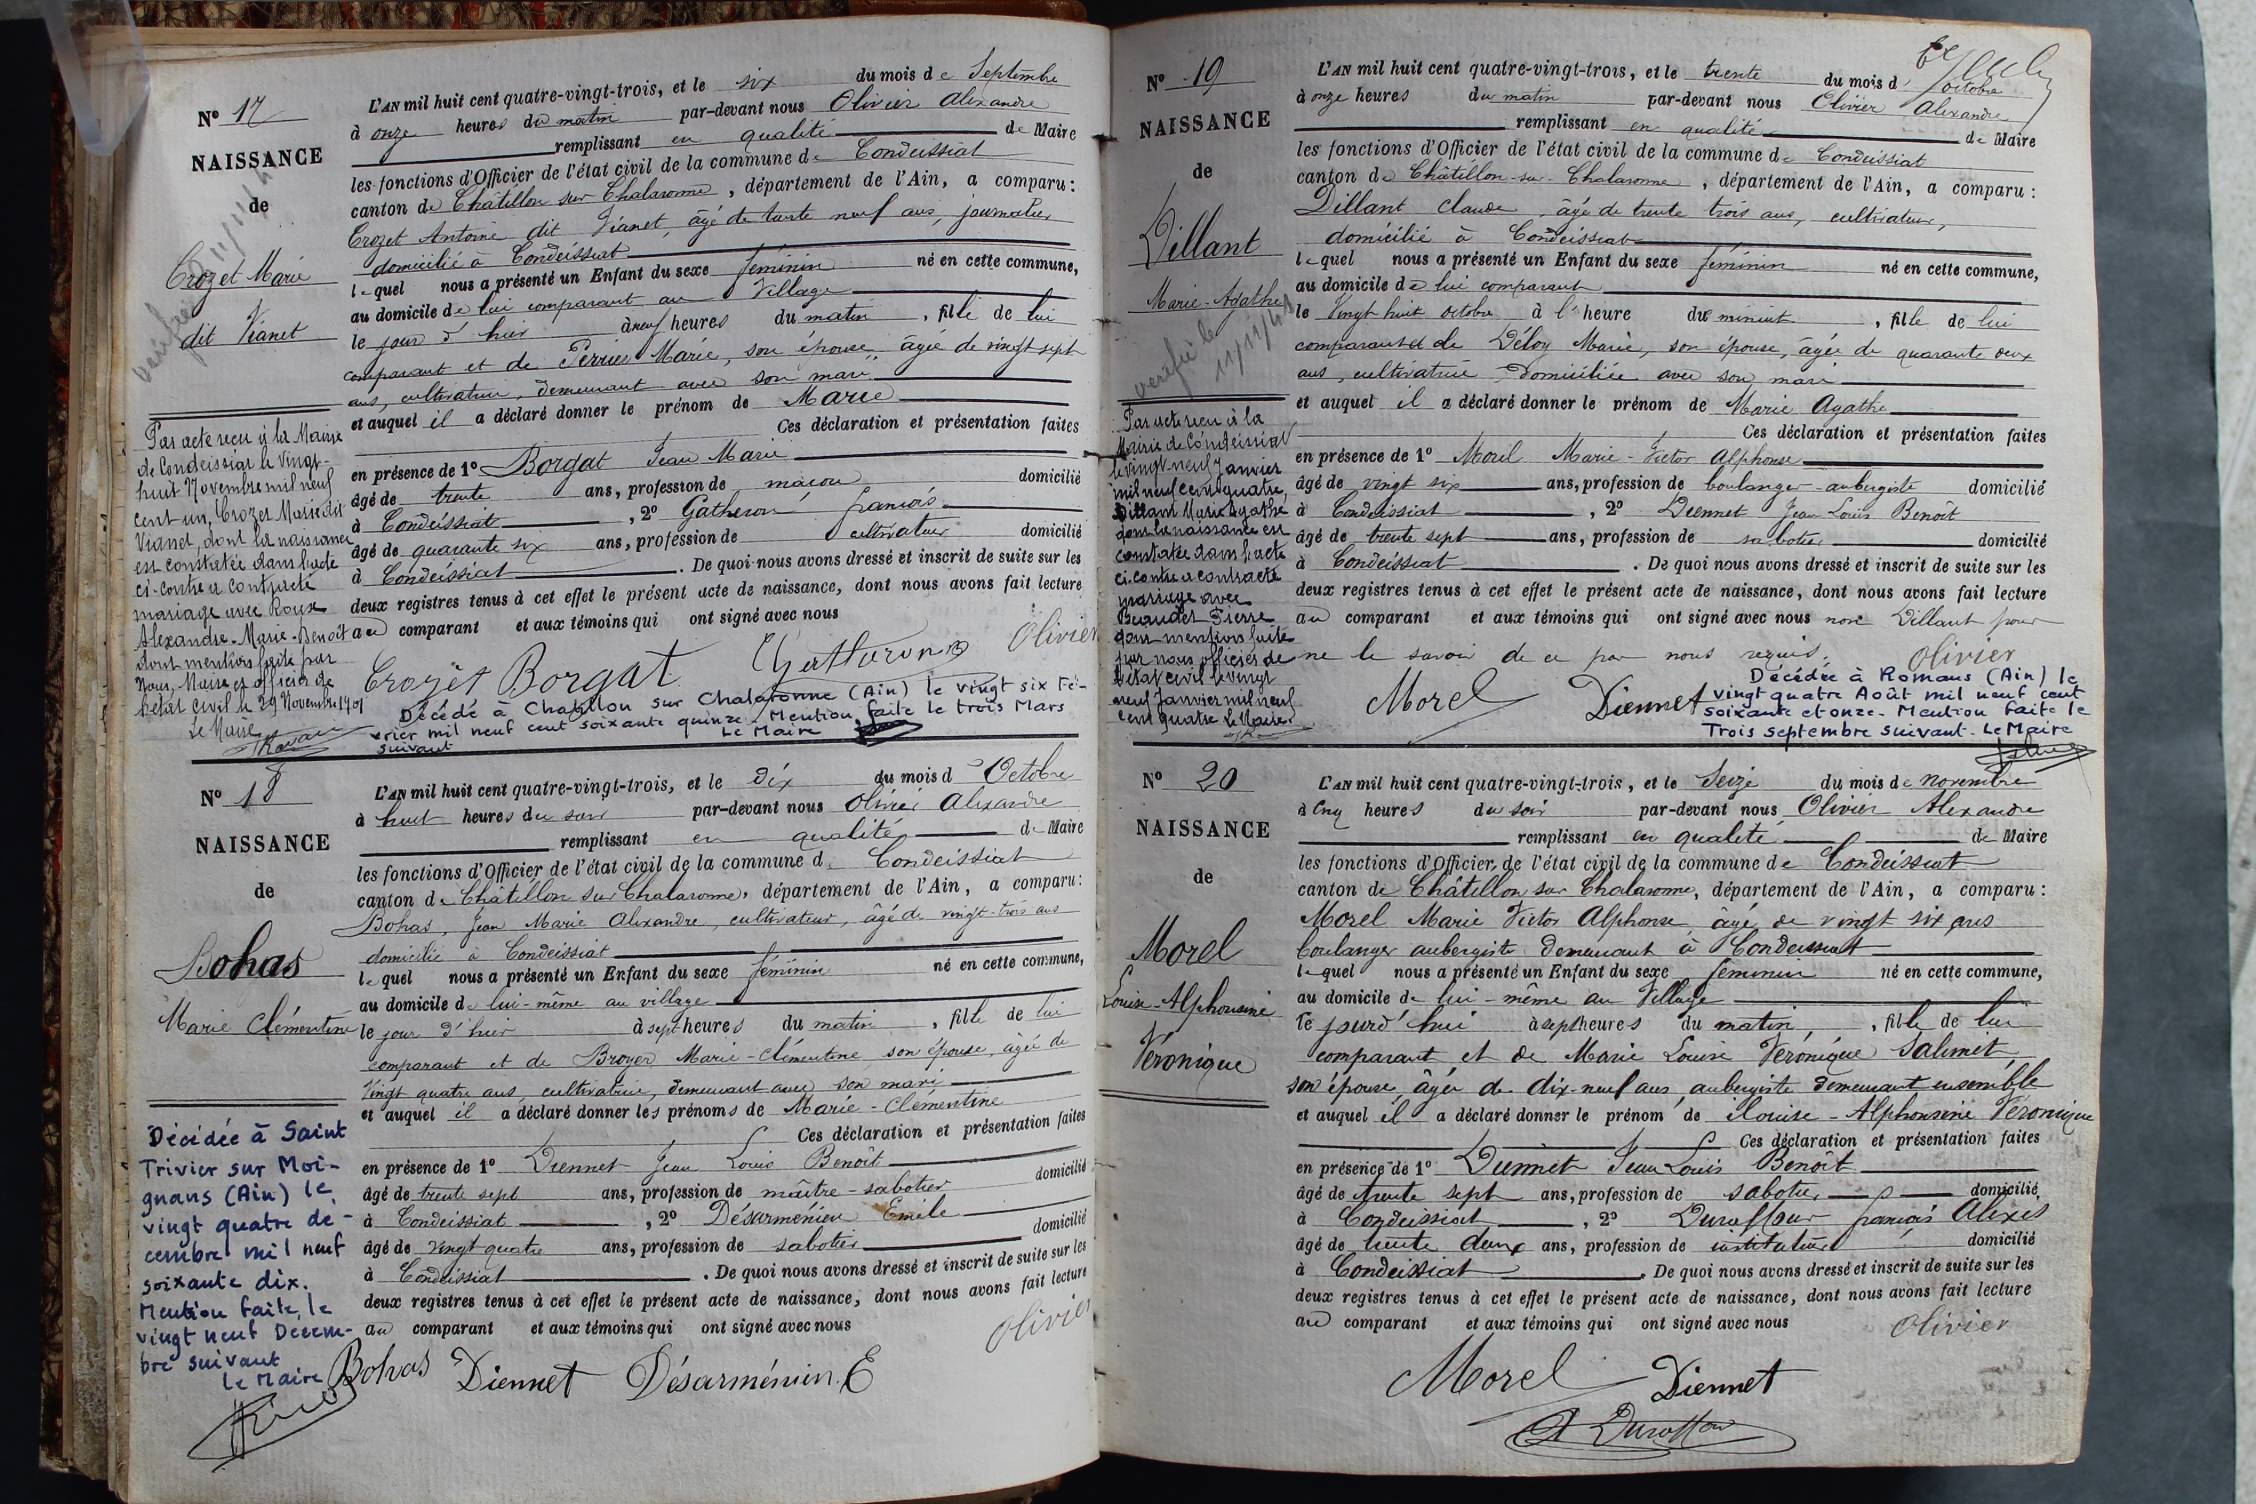 N° 17
NAISSANCE
de
Crozet Marie
dit Vianet
L'AN mil huit cent quatre-vingt-trois, et le six du mois de Septembre
à onze heures du matin par-devant nous Olivier Alexandre
remplissant en qualité de Maire
les fonctions d'Officier de l'état civil de la commune de Condeissiat
canton de Châtillon sur Chalaronne, département de l'Ain, a comparu :
Crozet Antoine dit Vianet, âgé de trente neuf ans, journalier
domicilié à Condeissiat
lequel nous a présenté un Enfant du sexe féminin né en cette commune,
au domicile de lui comparant au Village
le jour d'hier à neuf heures du matin, fille de lui
comparant et de Perrier Marie, son épouse, âgée de vingt sept
ans, cultivatrice, demeurant avec son mari
et auquel il a déclaré donner le prénom de Marie
Ces déclaration et présentation faites
en présence de 1° Borgat Jean Marie
âgé de trente ans, profession de maçon domicilié
à Condeissiat, 2° Gatheron françois
âgé de quarante six ans, profession de cultivateur domicilié
à Condeissiat. De quoi nous avons dressé et inscrit de suite sur les
deux registres tenus à cet effet le présent acte de naissance, dont nous avons fait lecture
au comparant et aux témoins qui ont signé avec nous
Crozet Borgat Gatheron Olivier
Décédé à Chatillon sur Chalaronne (Ain) le vingt six Fé-
vrier mil neuf cent soixante quinze. Mention faite le trois Mars
suivant Le Maire
Par acte reçu à la Mairie
de Condeissiat le Vingt-
huit Novembre mil neuf
cent un, Crozet Marie dit
Vianet, dont la naissance
est constatée dans l'acte
ci-contre a contracté
mariage avec Roux
Alexandre-Marie-Benoît
dont mention faite par
Nous, Maire et officier de
l'état civil le 29 Novembre 1901
Le Maire
N° 18
NAISSANCE
de
Bohas
Marie Clémentine
L'AN mil huit cent quatre-vingt-trois, et le dix du mois d'Octobre
à huit heures du soir par-devant nous Olivier Alexandre
remplissant en qualité de Maire
les fonctions d'Officier de l'état civil de la commune de Condeissiat
canton de Châtillon sur Chalaronne, département de l'Ain, a comparu :
Bohas, Jean Marie Alexandre, cultivateur, âgé de vingt-trois ans
domicilié à Condeissiat
lequel nous a présenté un Enfant du sexe féminin né en cette commune,
au domicile de lui-même au village
le jour d'hier à sept heures du matin, fille de lui
comparant et de Broyer Marie-Clémentine son épouse, âgée de
Vingt quatre ans, cultivatrice, demeurant avec son mari
et auquel il a déclaré donner les prénoms de Marie-Clémentine
Ces déclaration et présentation faites
en présence de 1° Diennet Jean Louis Benoît
âgé de trente sept ans, profession de maître-sabotier domicilié
à Condeissiat, 2° Désarménien Emile
âgé de vingt quatre ans, profession de sabotier domicilié
à Condeissiat. De quoi nous avons dressé et inscrit de suite sur les
deux registres tenus à cet effet le présent acte de naissance, dont nous avons fait lecture
au comparant et aux témoins qui ont signé avec nous
Olivier
Bohas Diennet Désarménien. E
Décédée à Saint
Trivier sur Moi-
gnans (Ain) le
vingt quatre dé-
cembre mil neuf
soixante dix.
Mention faite le
vingt neuf Décem-
bre suivant
Le Maire
N° 19
NAISSANCE
de
Dillant
Marie-Agathe
vérifié le
L'AN mil huit cent quatre-vingt-trois, et le trente du mois d'octobre
à onze heures du matin par-devant nous Olivier Alexandre
remplissant en qualité de Maire
les fonctions d'Officier de l'état civil de la commune de Condeissiat
canton de Châtillon-sur-Chalaronne, département de l'Ain, a comparu :
Dillant Claude, âgé de trente trois ans, cultivateur,
domicilié à Condeissiat
lequel nous a présenté un Enfant du sexe féminin né en cette commune,
au domicile de lui comparant
le Vingt huit octobre à l'heure de minuit, fille de lui
comparant et de Déloy Marie, son épouse, âgée de quarante deux
ans, cultivatrice Domiciliée avec son mari
et auquel il a déclaré donner le prénom de Marie Agathe
Ces déclaration et présentation faites
en présence de 1° Morel Marie-Victor Alphonse
âgé de vingt six ans, profession de boulanger-aubergiste domicilié
à Condeissiat, 2° Diennet Jean Louis Benoît
âgé de trente sept ans, profession de sabotier domicilié
à Condeissiat. De quoi nous avons dressé et inscrit de suite sur les
deux registres tenus à cet effet le présent acte de naissance, dont nous avons fait lecture
au comparant et aux témoins qui ont signé avec nous non Dillant pour
ne le savoir de ce par nous requis.
Olivier
Morel Diennet
Décédée à Romans (Ain) le
vingt quatre Août mil neuf cent
soixante et onze. Mention faite le
Trois septembre suivant. Le Maire
Par acte reçu à la
Mairie de Condeissiat
le vingt-neuf Janvier
mil neuf cent quatre,
Dillant Marie Agathe
dont la naissance est
constatée dans l'acte
ci-contre a contracté
mariage avec
Beaudet Pierre
dont mention faite
par nous officier de
l'état civil le vingt
neuf Janvier mil neuf
cent quatre Le Maire
N° 20
NAISSANCE
de
Morel
Louise-Alphonsine
Véronique
L'AN mil huit cent quatre-vingt-trois, et le Seize du mois de novembre
à cinq heures du soir par-devant nous Olivier Alexandre
remplissant en qualité de Maire
les fonctions d'Officier de l'état civil de la commune de Condeissiat
canton de Châtillon sur Chalaronne, département de l'Ain, a comparu :
Morel Marie Victor Alphonse, âgé de vingt six ans
boulanger aubergiste demeurant à Condeissiat
lequel nous a présenté un Enfant du sexe féminin né en cette commune,
au domicile de lui-même au Village
le jourd'hui à sept heures du matin, fille de lui
comparant et de Marie Louise Véronique Salimet
son épouse âgée de dix-neuf ans, aubergiste demeurant ensemble
et auquel il a déclaré donner le prénom de Louise-Alphonsine Véronique
Ces déclaration et présentation faites
en présence de 1° Diennet Jean Louis Benoît
âgé de trente sept ans, profession de sabotier domicilié
à Condeissiat, 2° Duraffour françois Alexis
âgé de trente deux ans, profession de instituteur domicilié
à Condeissiat. De quoi nous avons dressé et inscrit de suite sur les
deux registres tenus à cet effet le présent acte de naissance, dont nous avons fait lecture
au comparant et aux témoins qui ont signé avec nous
Olivier
Morel Diennet
A Duraffour